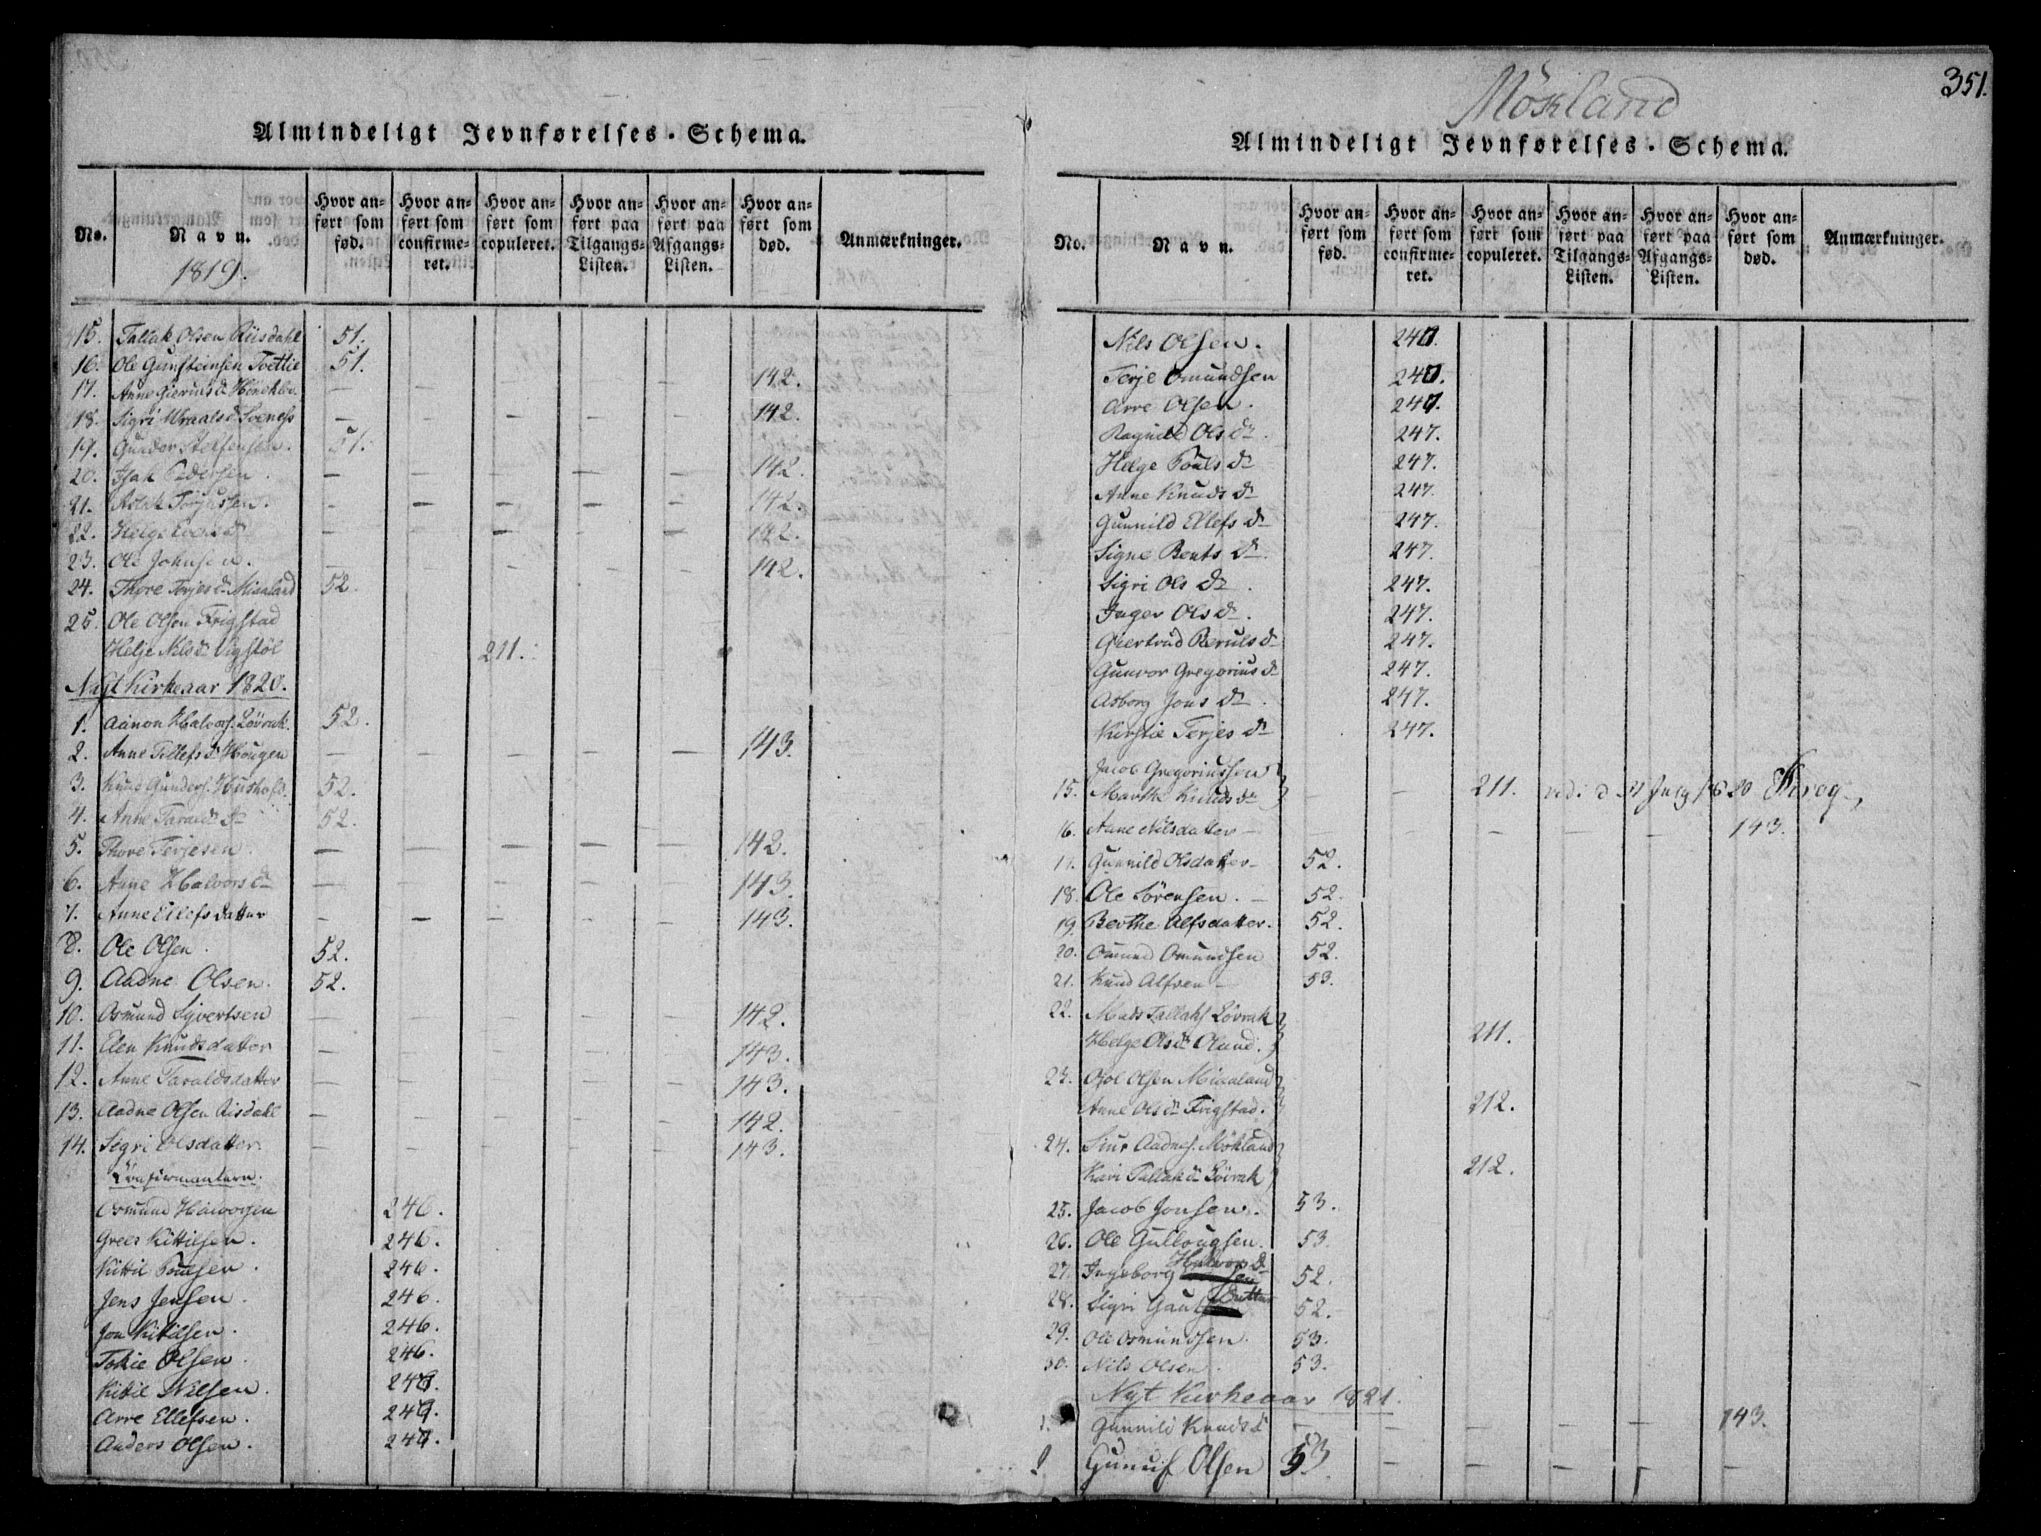 351.
Almindeligt Jevnførelses-Schema.
No. Navn. Hvor anført som fød. Hvor anført som confirmeret. Hvor anført som copuleret. Hvor anført paa Tilgangs-Listen. Hvor anført paa Afgangs-Listen. Hvor anført som død. Anmærkninger.
1819.
15. Tallak Olsen Riisdahl 51.
16. Ole Gunsteinsen Tvettie 51.
17. Anne — — — — — 142.
18. Sigri — — — — — 142.
19. Gunder 51.
20. Isak Pedersen. — — — — — 142.
21. Aslak — — — — — 142.
22. Helge — — — — — 142.
23. Ole Johnsen. — — — — — 142.
24. Thore Terjes dr Misaland 52.
25. Ole Olsen Frigstad
Helje Nils dr Vigstøl 211.
Nyt Kirkeaar 1820.
1. Aanon Halvors. Lövrak. 52.
2. Anne Tellefs dr Hougen — — — — — 143.
3. Knud Gunders. 52.
4. Anne Taralds dr 52.
5. Thore Terjesen. — — — — — 142.
6. Anne Halvors dr — — — — — 143.
7. Anne Ellefsdatter — — — — — 143.
8. Ole Olsen. 52.
9. Aadne Olsen. 52.
10. Osmund Syvertsen — — — — — 142.
11. Elen Knudsdatter — — — — — 143.
12. Anne Taraldsdatter — — — — — 143.
13. Aadne Olsen Risdahl — — — — — 142.
14. Sigri Olsdatter. — — — — — 143.
Confirmantern.
Osmund Halvorsen 246.
Grels Kittilsen. 246.
Kittil 246.
Jens Jensen. 246.
Jon Kitilsen. 246.
Tokie Olsen. 246.
Kitil Nilsen.
Arre Ellefsen.
Anders Olsen.
Møsland
Almindeligt Jevnførelses-Schema.
No. Navn. Hvor anført som fød. Hvor anført som confirmeret. Hvor anført som copuleret. Hvor anført paa Tilgangs-Listen. Hvor anført paa Afgangs-Listen. Hvor anført som død. Anmærkninger.
Nils Olsen.
Terje Omundsen
Arre Olsen.
Ragnild Ols dr. 247.
Helge Pouls dr 247.
Anne Knuds dr 247.
Gunnild Ellefs dr 247.
Signe Bents dr. 247.
Sigri Ols dr. 247.
Inger Ols dr. 247.
Giertrud Beruls dr 247.
Gunvor Gregorius dr 247.
Asborg Jons dr. 247.
Kirstie Terjes dr 247.
Jacob Gregoriussen
15. Marthe Knuds dr — — 211.
16. Anne Nilsdatter — — — — — — 143.
17. Gunnild Olsdatter — 52.
18. Ole Sörensen. — 52.
19. Berthe Alfsdatter. 52.
20. Osmund Omundsen 52.
21. Knud Alfsen — 53.
22. Mads Tallaks. Lövrak
Helge Ols dr Olund. 211.
23. Olsen Misaland
Anne Ols dr Frigstad. 212.
24. Siur Aadnes. Mökland
Kari Tallak dr Lövrak 212.
25. Jacob Jonsen. 53.
26. Ole Gullougsen. 53.
27. Ingeborg Halvors dr 52.
28. Sigri Gauts Datter 52.
29. Ole Osmundsen. 53.
30. Nils Olsen. 53.
Nyt Kirkeaar 1821.
1. Gunnild Knuds d — — — — — 143.
Gunuf Olsen 53. — — — —